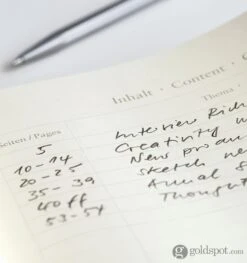 Inhalt · Content ·
Seiten / Pages
Thema
5 Interview Rich
10 - 14 Creativity
20 - 25 New produ
35 - 39 sketch ne
40 ff Annual
53 - 54 Thought
goldspot.com